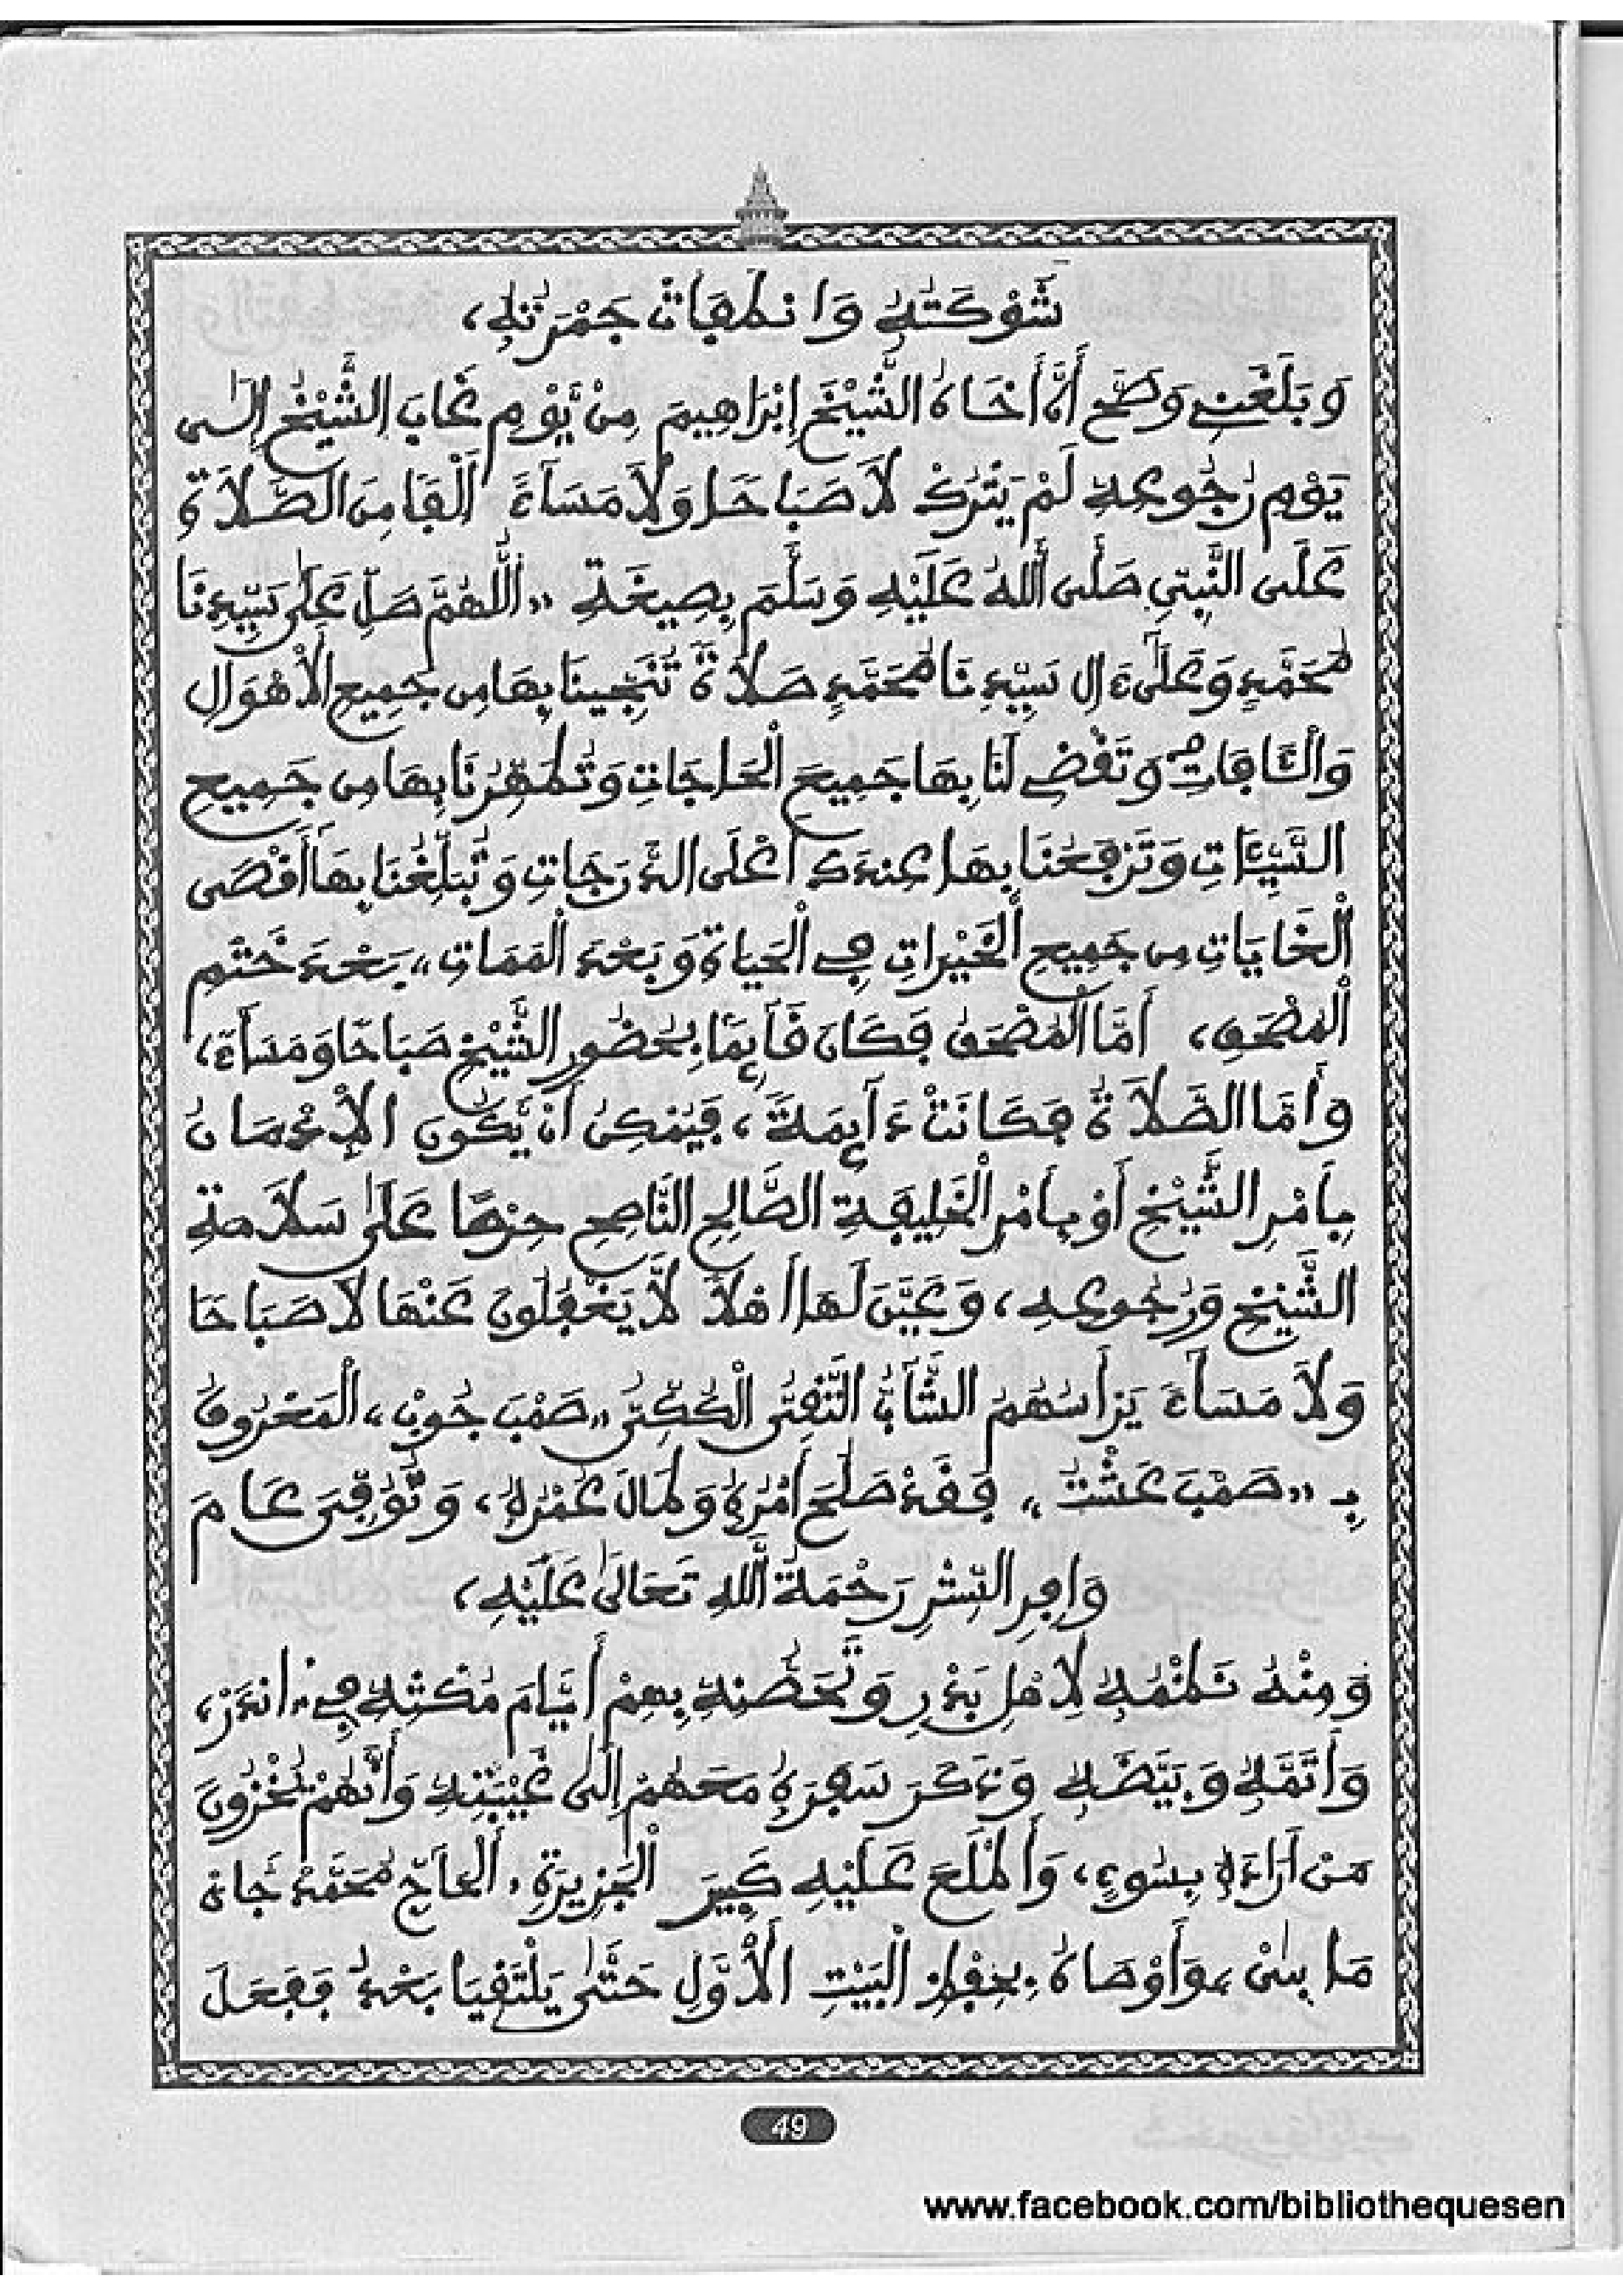 شَوْكَتُهُ وَانْطَفَأَتْ جَمْرَتُهُ،
وَبَلَغَنِي وَصَحَّ أَنَّ أَخَاهُ الشَّيْخَ إِبْرَاهِيمَ مِنْ يَوْمِ غَابَ الشَّيْخُ إِلَى
يَوْمِ رُجُوعِهِ لَمْ يَتْرُكْ لَا صَبَاحًا وَلَا مَسَاءً أَلْفًا مِنَ الصَّلَاةِ
عَلَى النَّبِيِّ صَلَّى اللهُ عَلَيْهِ وَسَلَّمَ بِصِيغَةِ «اللَّهُمَّ صَلِّ عَلَى سَيِّدِنَا
مُحَمَّدٍ وَعَلَى ءَالِ سَيِّدِنَا مُحَمَّدٍ صَلَاةً تُنْجِينَا بِهَا مِنْ جَمِيعِ الْأَهْوَالِ
وَالْآفَاتِ وَتَقْضِي لَنَا بِهَا جَمِيعَ الْحَاجَاتِ وَتُطَهِّرُنَا بِهَا مِنْ جَمِيعِ
السَّيِّئَاتِ وَتَرْفَعُنَا بِهَا عِنْدَكَ أَعْلَى الدَّرَجَاتِ وَتُبَلِّغُنَا بِهَا أَقْصَى
الْغَايَاتِ مِنْ جَمِيعِ الْخَيْرَاتِ فِي الْحَيَاةِ وَبَعْدَ الْمَمَاتِ» بَعْدَ خَتْمِ
الْمُصْحَفِ، أَمَّا الْمُصْحَفُ فَكَانَ قَائِمًا بِحُضُورِ الشَّيْخِ صَبَاحًا وَمَسَاءً،
وَأَمَّا الصَّلَاةُ فَكَانَتْ دَائِمَةً، فَيُمْكِنُ أَنْ يَكُونَ الْإِدْمَانُ
بِأَمْرِ الشَّيْخِ أَوْ بِأَمْرِ الْخَلِيفَةِ الصَّالِحِ النَّاصِحِ حِرْصًا عَلَى سَلَامَةِ
الشَّيْخِ وَرُجُوعِهِ، وَعَيَّنَ لَهَا أَهْلًا لَّا يَغْفُلُونَ عَنْهَا لَا صَبَاحًا
وَلَا مَسَاءً يَرْأَسُهُمُ الشَّابُّ التَّقِيُّ الْكُكِّيُّ «صَمْبَ جُوبْ» الْمَعْرُوفُ
بِـ «صَمْبَ عَشْتَ» فَقَدْ صَلُحَ أَمْرُهُ وَطَالَ عُمْرُهُ، وَتُوُفِّيَ عَامَ
وَافِرِ السِّرِّ رَحْمَةُ اللهِ تَعَالَى عَلَيْهِ،
وَمِنْهُ نَظْمُهُ لِأَهْلِ بَدْرٍ وَتَحَصُّنِهِ بِهِمْ أَيَّامَ مُكْثِهِ فِي دَانْدَرْ،
وَأَتَمَّهُ وَبَيَّضَهُ وَذَكَرَ سَفَرَهُ مَعَهُمْ إِلَى غَيْبَتِهِ وَأَنَّهُمْ يُخْزُونَ
مَنْ أَرَادَهُ بِسُوءٍ، وَأَطْلَعَ عَلَيْهِ كَبِيرَ الْجَزِيرَةِ، الْحَاجَّ مُحَمَّدْ جَانَ
مَا بِيْ، وَأَوْصَاهُ بِحِفْظِ الْبَيْتِ الْأَوَّلِ حَتَّى يَلْتَقِيَا بَعْدُ فَفَعَلَ
49
www.facebook.com/bibliothequesen